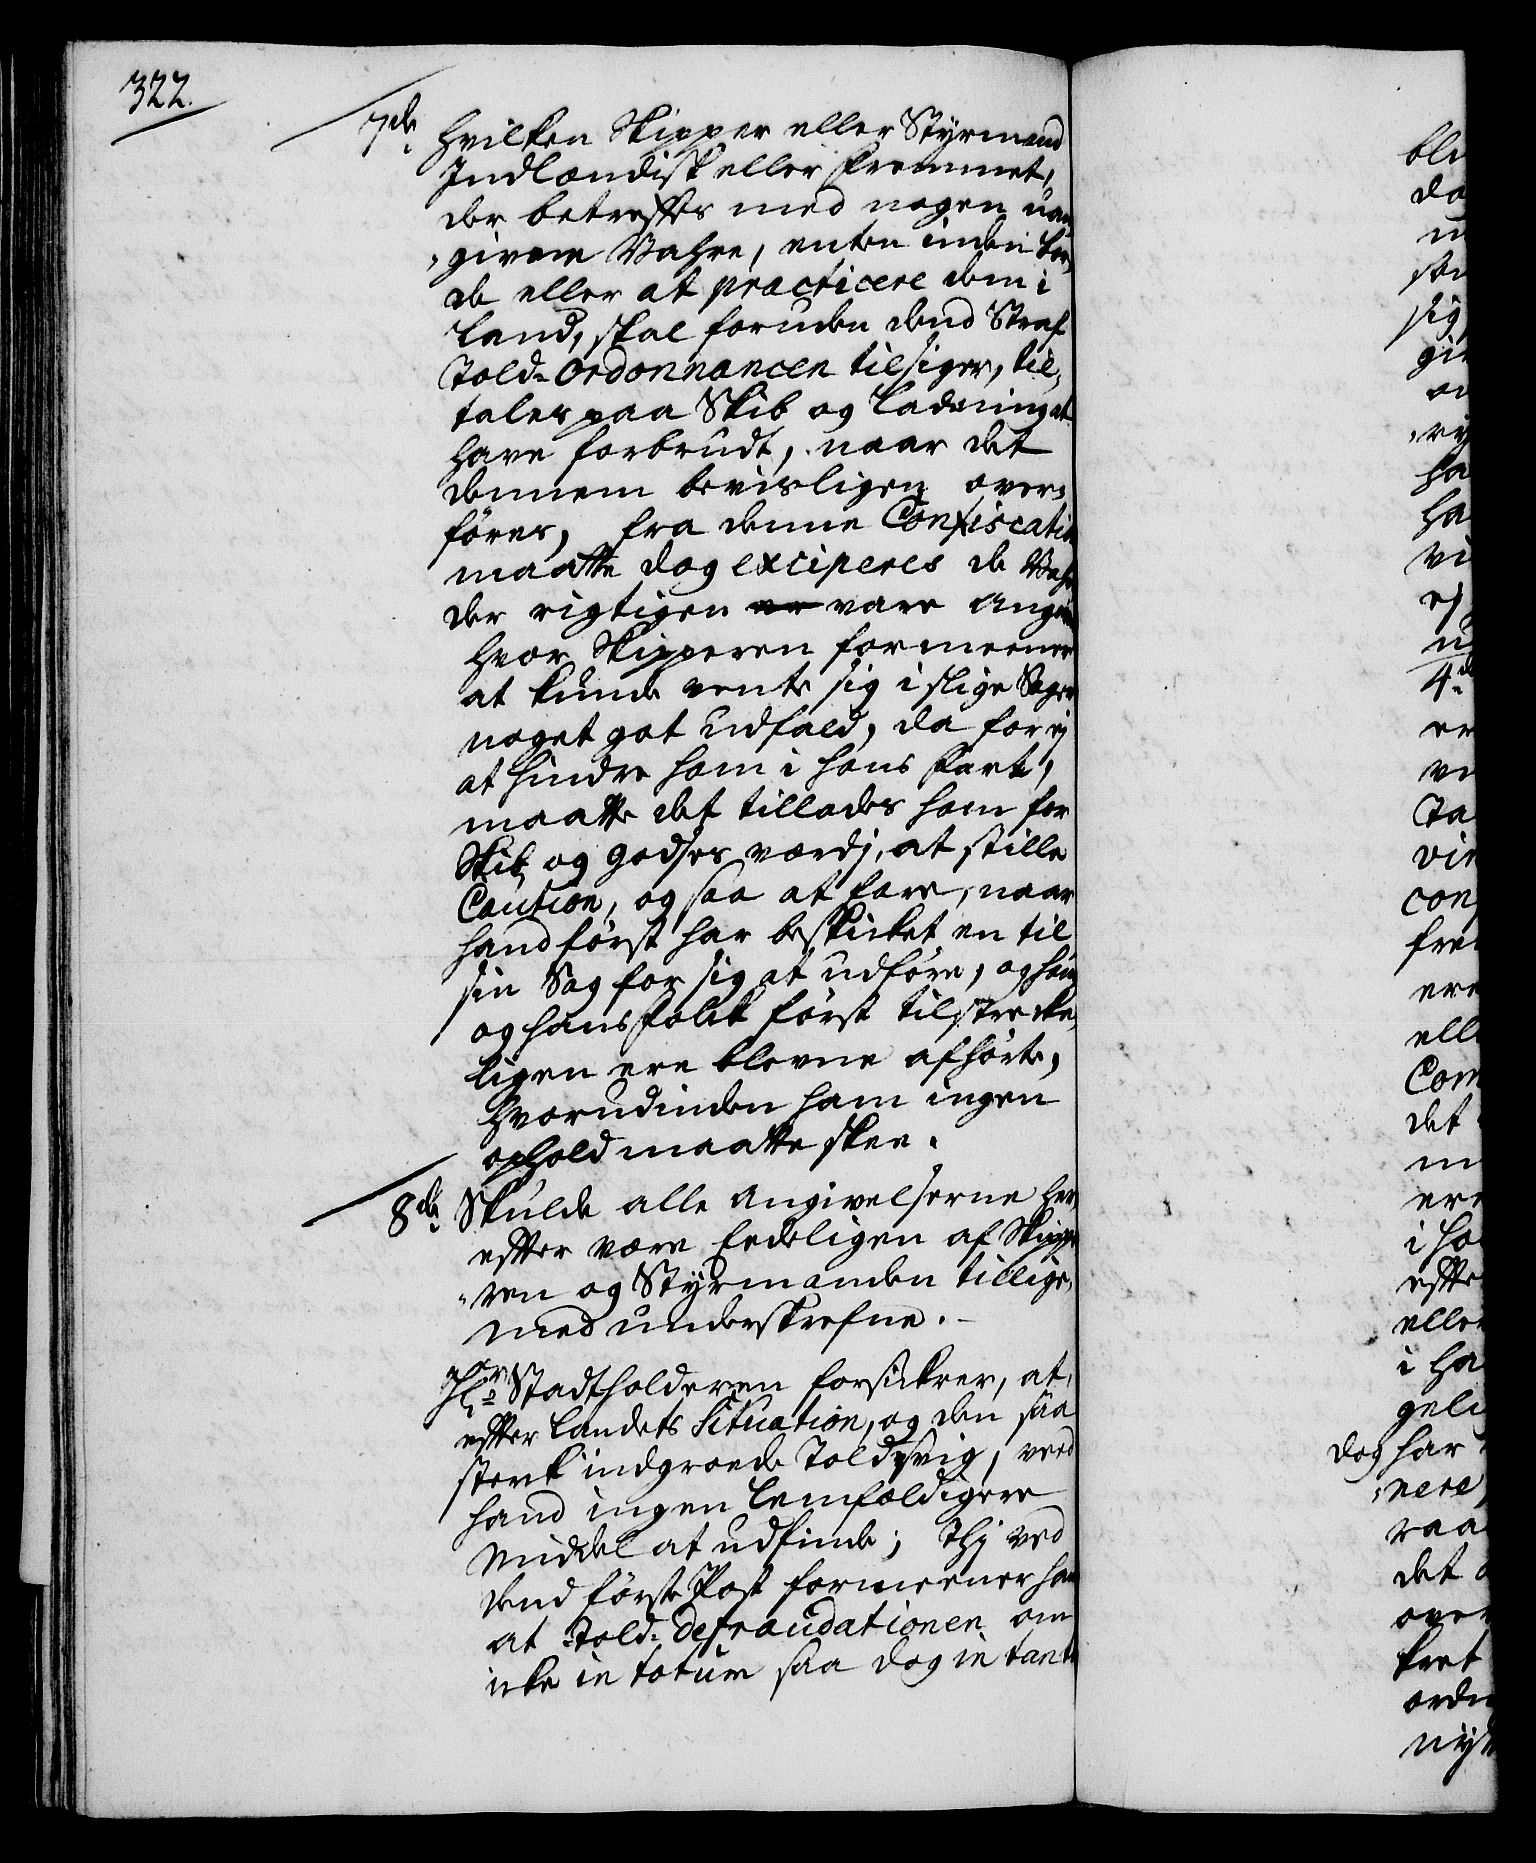 322.
7de Hvilken Skipper eller Styrmand
Indlændisk eller fremmet,
der betreffes med nogen uan¬
„givne Vahre, enten inden bor¬
de eller at practicere dem i
Land, skal foruden dend Straf
Told-Ordonnancen tilsiger, til¬
tales paa Skib og Ladning at
have forbrudt, naar det
dennem bevisligen over¬
føres, fra denne Confiscation
maatte dog exciperes de Vahre
der rigtigen er vare angivne
Hvor Skipperen formeener
at kunde vente sig i slige Sager
noget got udfald, da for ej
at hindre ham i hans fart,
maatte det tillades ham for
Skib og Godses værdj, at stille
Caution, og saa at fare, naar
hand først har beskicket en til
sin Sag for sig at udføre, og hand
og hans folck først tilstrecke¬
ligen ere blevne afhørte,
Hvorudinden ham ingen
ophold maatte skee.
8de Skulde alle Angivelserne her¬
effter være Eedeligen af Skippe¬
„ren og Styrmanden tillige¬
med underskrefne.
Hr Stadtholderen forsickrer, at,
effter Landets Situation, og den saa
sterk indgroede Toldsvig, veed
hand ingen lemfældigere
Middel at udfinde; Thj ved
dend første Post formeener hand
at Told-defraudationen om
icke in totum saa dog in tanto
bli
do
u
sig
gi
ha
ha
vi
ej
4de
er
Ta
con
fre
ere
elle
Com
det
ere
i ho
effte
eller
i ha
geli
dog har
„nere
raa
det
over
kret
orden